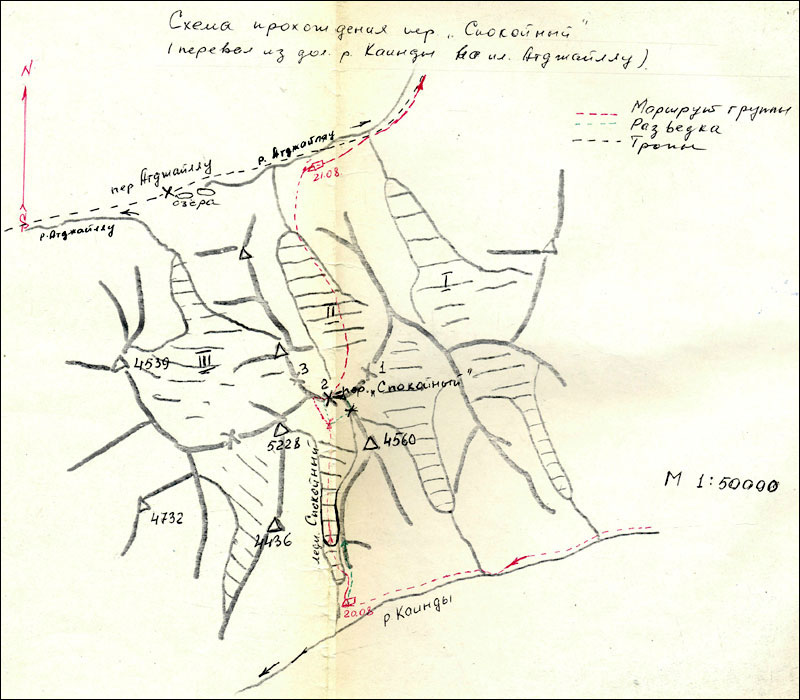 Схема прохождения пер. „Спокойный"
(перевал из дол. р. Каинды на лл. Атджайляу)
N
Маршрут группы
Разведка
Тропы
пер Атджайляу
р. Атджайляу
21.08
озера
р. Атджайляу
I
II
III
4539
1
3
2
пер. „Спокойный"
5228
4560
ледн. Спокойный
М 1:50000
4732
4436
20.08
р Каинды